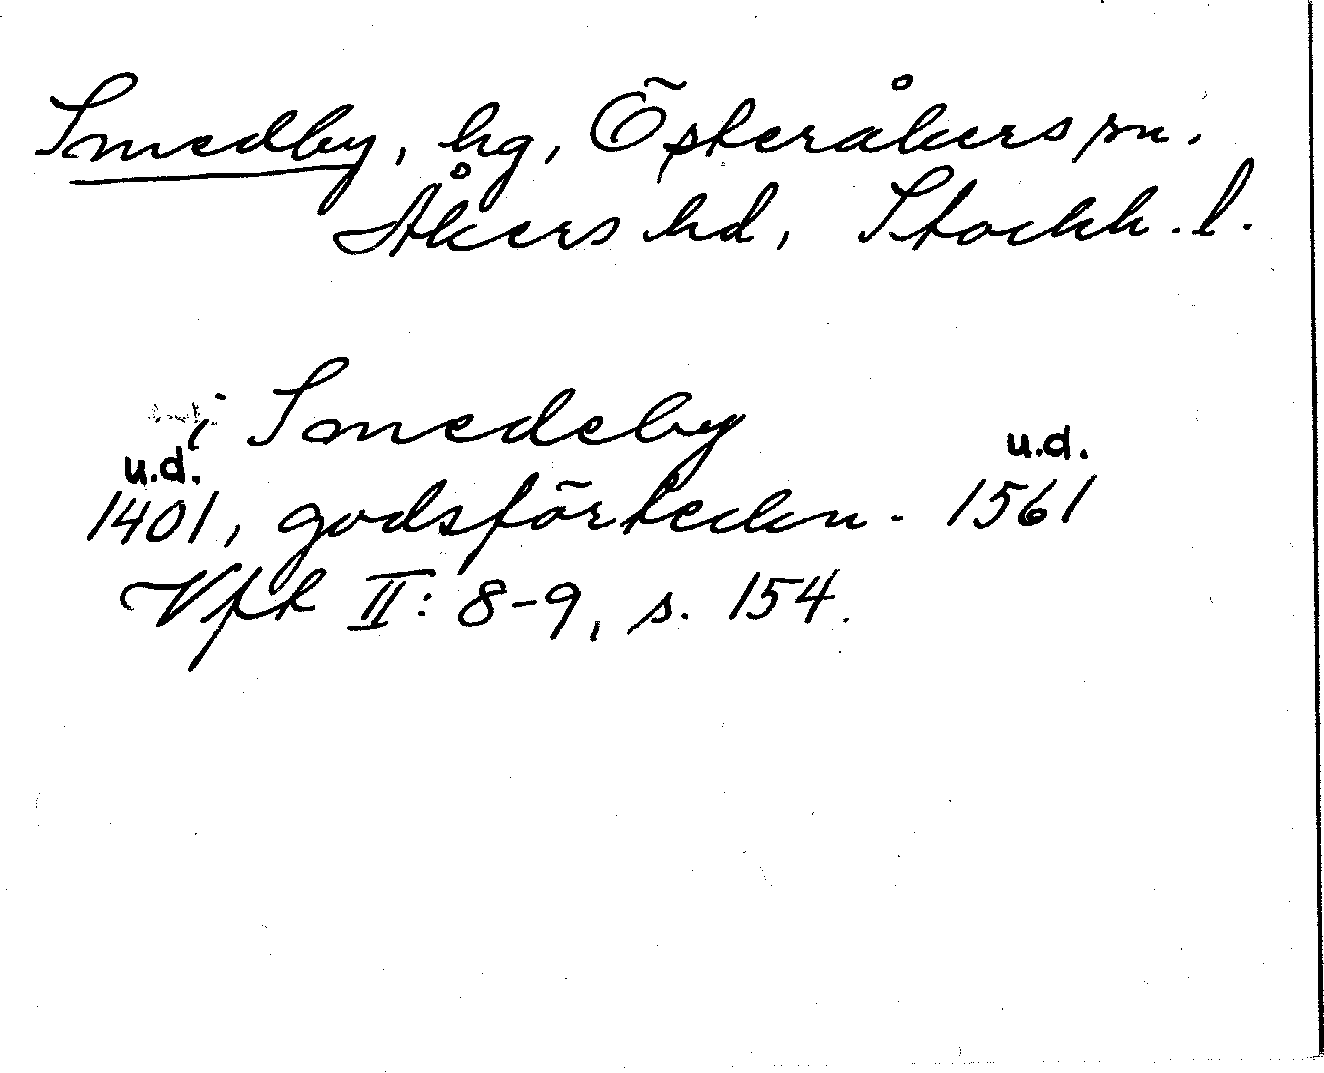 Smedby, hg, Österåkers sn.
Åkers hd, Stockh. l.
i Smedeby
u.d. u.d.
1401, godsförteckn. 1561
Vfrk II: 8-9, s. 154.